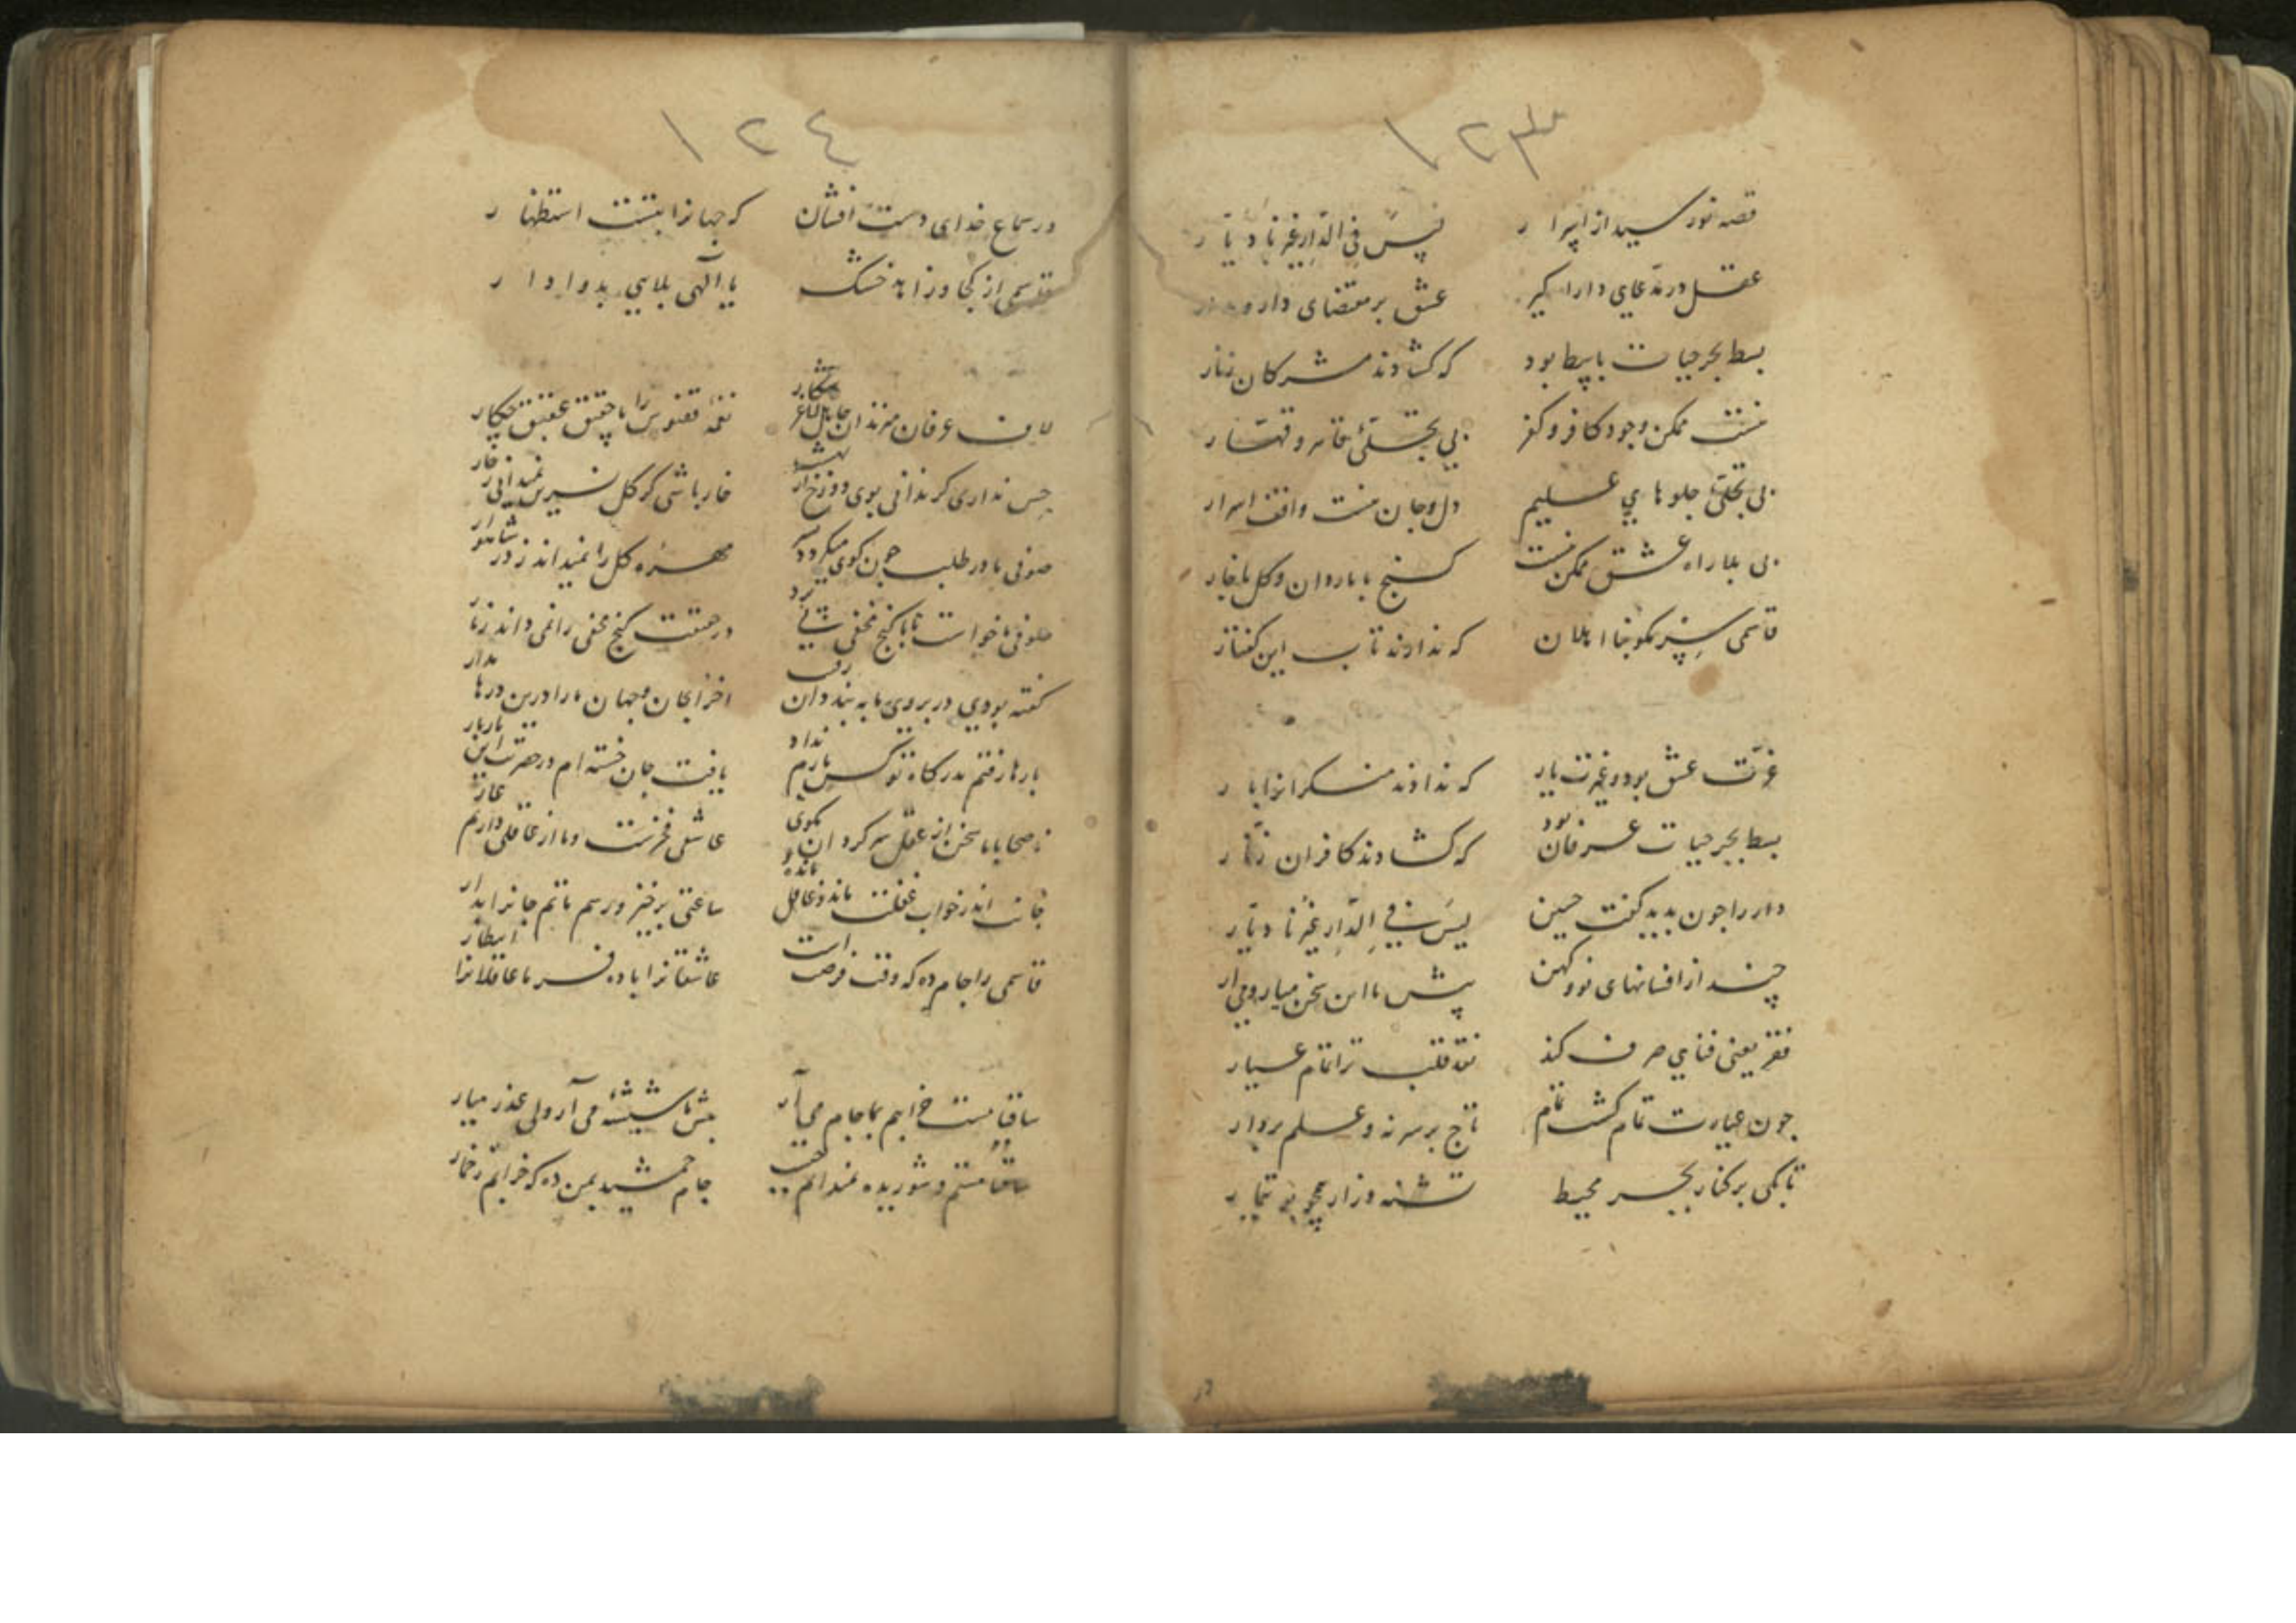 ١٢٣
قصه نور سید از اپرا ر لیس فی الدار غیرنا دیا ر
عقل در مدعای دارا کیر عشق بر مقتضای دار و مدار
بسط بحر حیات با بود که کشادند مشرکان زنار
نیست ممکن وجود کافر و کفر بی تجلئ قاهر و قهار
بی تجلی جلوهای علیم دل و جان نیست واقف اسرار
بی بلا راه عشق ممکن نیست کنج با ماروان و کل با خار
قاسمی سر مکو بنا اهلان که ندارند تاب این کفتار
عزت عشق بود و غیرت یار که ندادند منکرانرا با ر
بسط بحر حیات عرفان بود که کشادند کافران زنا ر
دار را جون بدید کفت حسین لیس فی الدار غیرنا دیار
چند از افسانهای نو و کهن پیش ما این سخن میار و
فقر یعنی فنای صرف کند نقد قلب ترا تمام عیار
جون عیارت تمام کشت تمام تاج بر سر نه و علم بردار
تا بکی بر کنار بحر محیط تشنه و زار
١٢٤
در سماع خدای دست افشان که جهانرا بتست استظها ر
قاسمی از کجا و زاهد خشک یا الهی بلایی بدوا دا ر
لاف عرفان میزند ان جاهل نغمه ققنوس را با حقیق عقیق
حس نداری کر ندانی بوی دوزخ از بهشت خار باشی کر کل نسرین نمیدانی ز خار
صوفی ما در طلب جون کوی میکردد مهره کل را نمیداند ز در شاهوار
صوفی ما خواست تا با کنج مخفی پی برد در حقیقت کنج مخفی را نمی داند ز نار
کفته بودی در بروی ما به بند دان رقیب اخر ایجان و جهان ما را درین درها مدار
بارها رفتم بدرکاه تو کس بارم نداد یافت جان خسته ام در حضرت این بار بار
ناصحا با ما سخن از عقل سر کردان مکوی عاشقی فخرست و ما از عاقلی داریم عار
جانت اندر خواب غفلت ماند و غافل مانده ساعتی برخیز و رسم ماتم جانرا بدار
قاسمی را جام ده که وقت فرصت است عاشقانرا باده فرما عاقلانرا انتظار
ساقیا مست خرابیم بما جام می آر پیش ما شیشه می آر ولی عذر میار
مستم و شوریده نمیدانم جام جمشید بمن ده که خرابم ز خمار